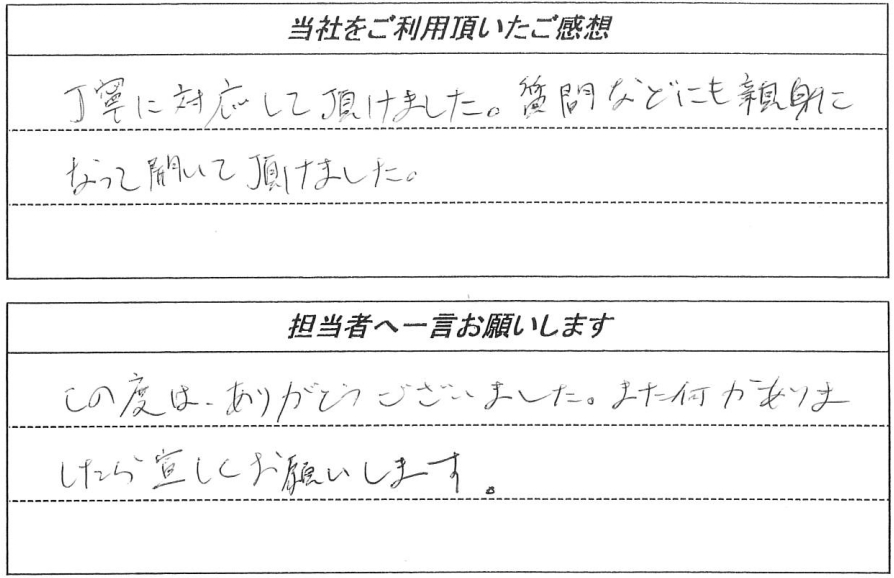 当社をご利用頂いたご感想
丁寧に対応して頂けました。質問などにも親身に
なって聞いて頂けました。
担当者へ一言お願いします
この度は、ありがとうございました。また何かありま
したら宜しくお願いします。